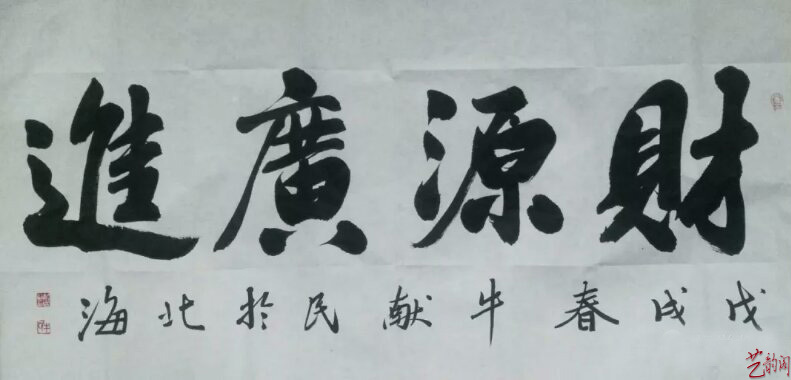 財源廣進
戊戌春牛献民於北海
艺韵阁